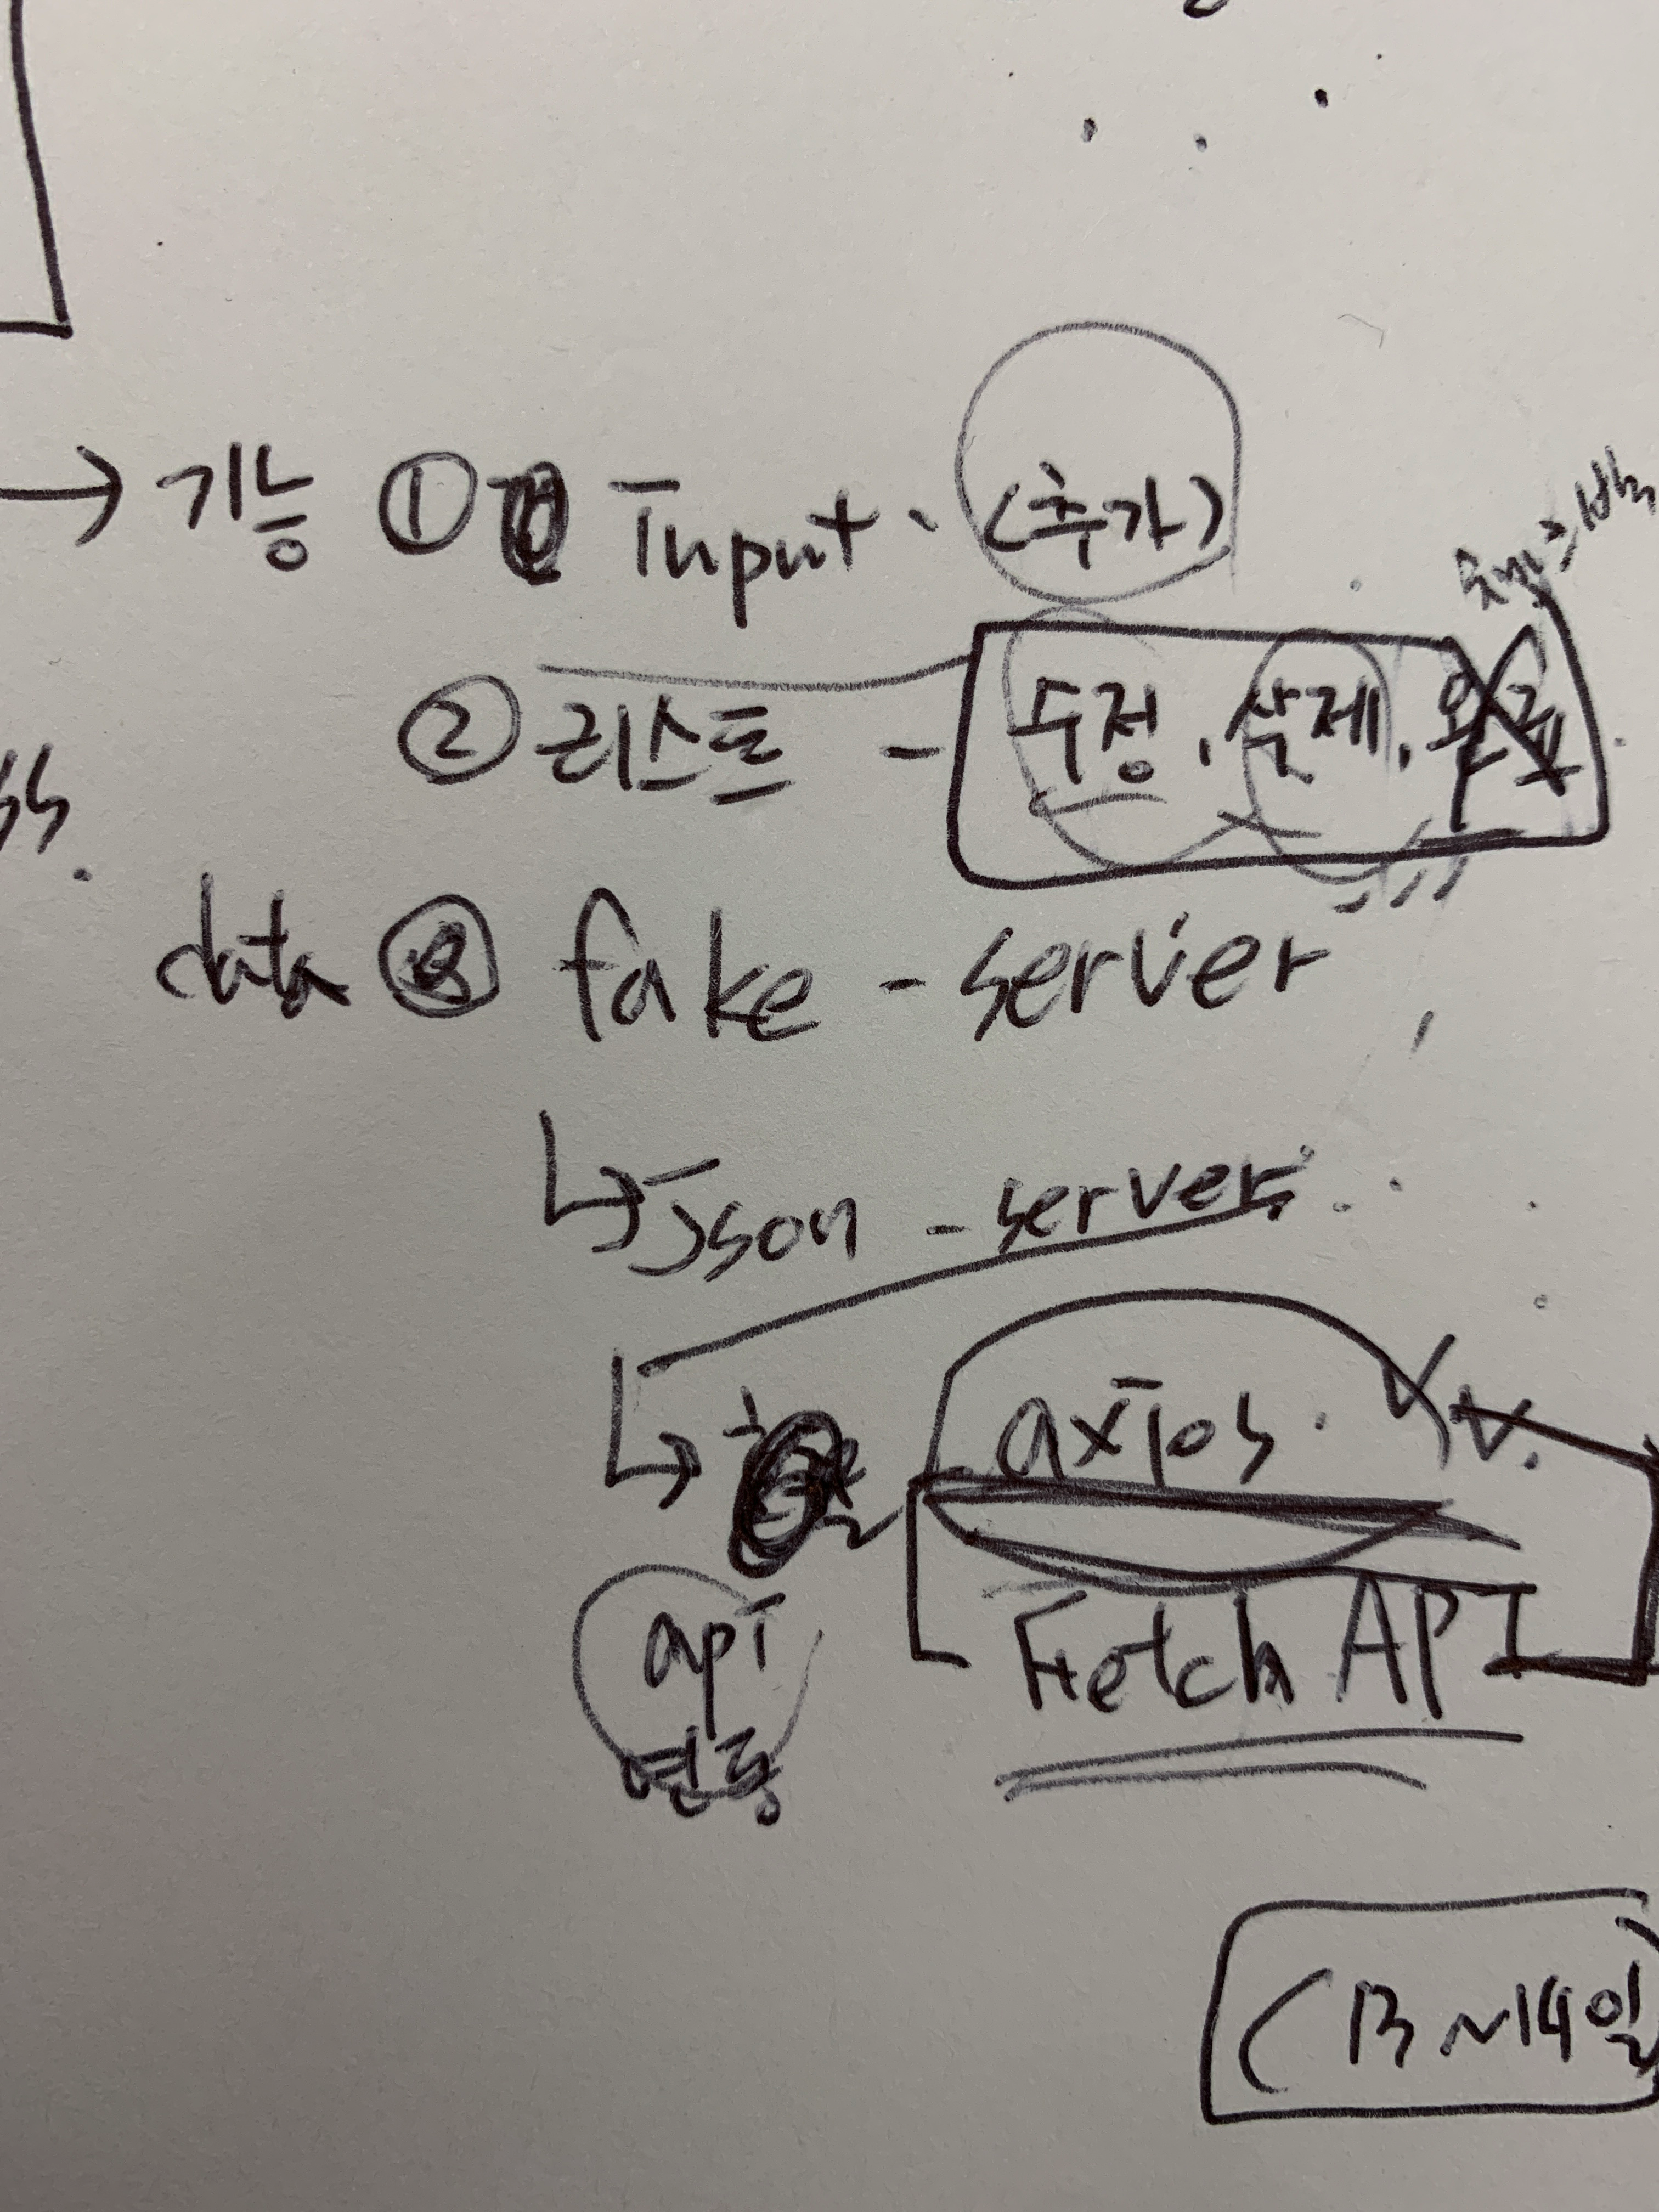 → 기능 ① Input. (추가)
② 리스트 - 수정, 삭제, 완료
ss.
data fake-server
↳ Json-server.
↳ axios.
Fetch API
api
연동
(13~14일